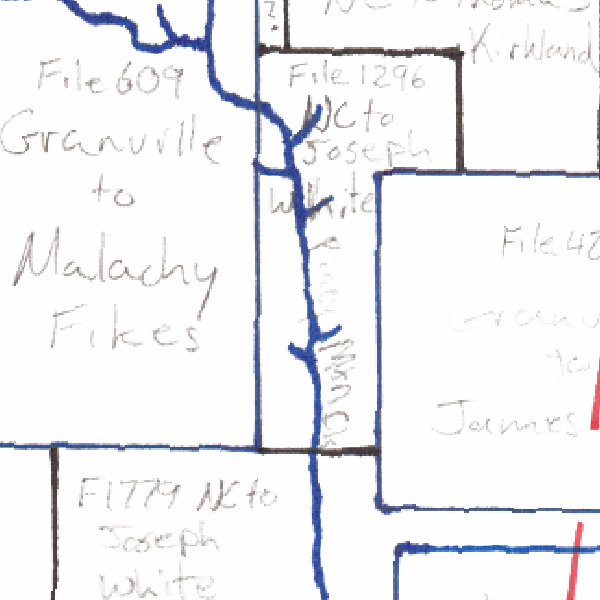 ?
NC to Thomas
Kirkland
File 609
Granville
to
Malachy
Fikes
File 1296
NC to
Joseph
White
File 42
Granv
James
F1779 NC to
Joseph
White